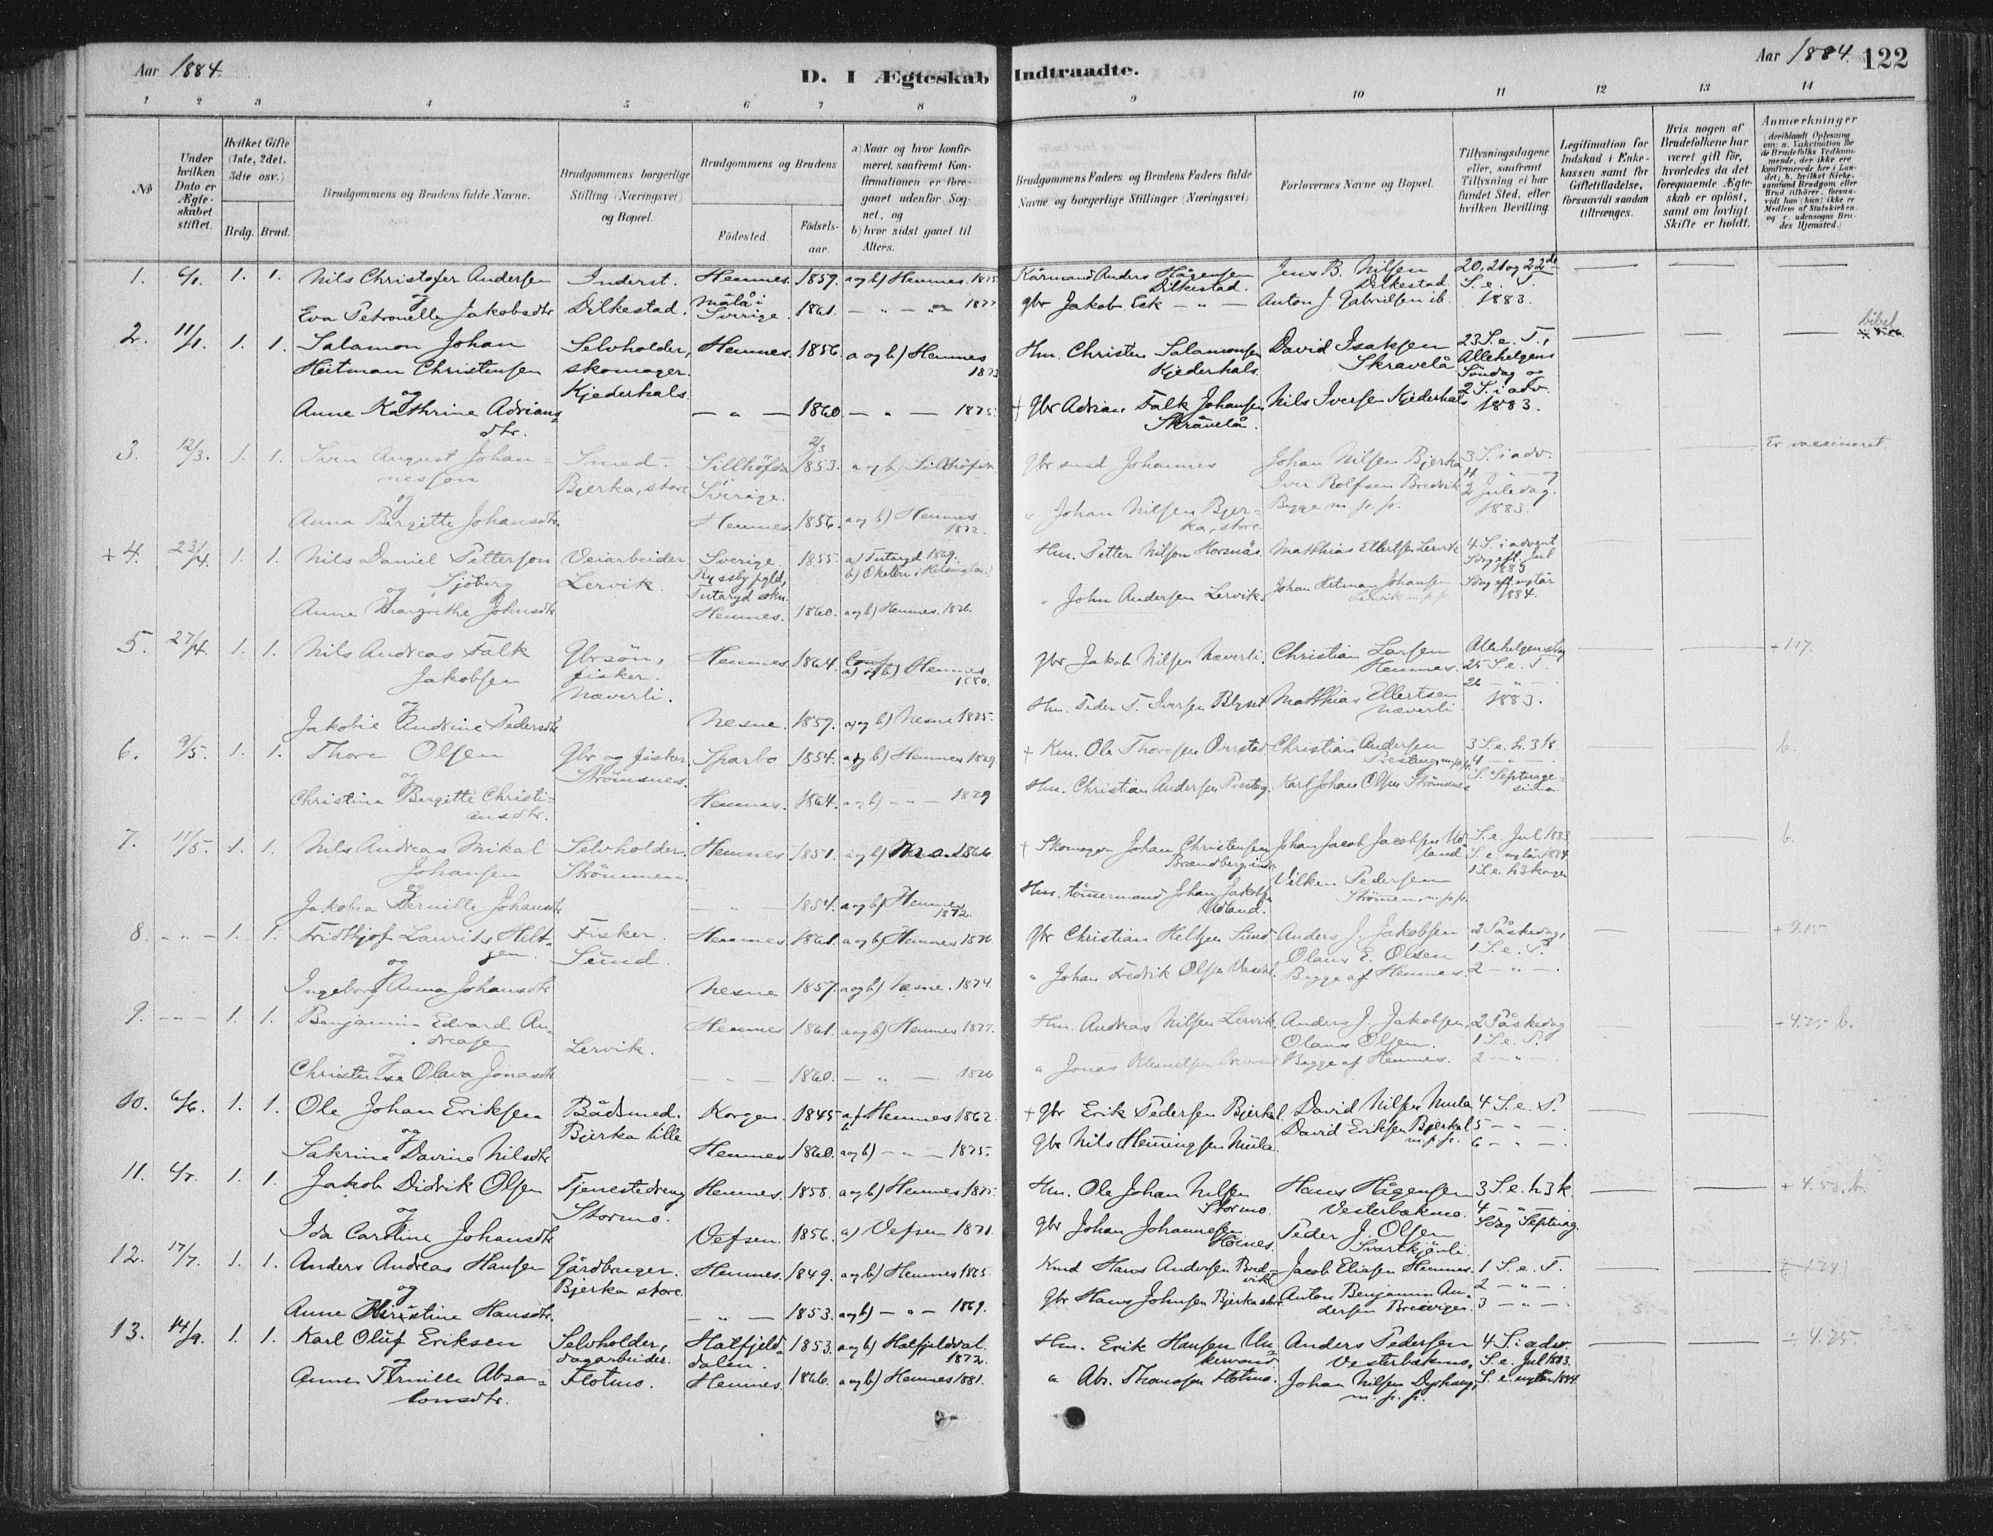 Aar 1884.
D. I Ægteskab Indtraadte.
Aar 1884. 122
1 2 3 4 5 6 7 8 9 10 11 12 13 14
No
Under hvilken Dato er Ægteskabet stiftet.
Hvilket Gifte (1ste, 2det, 3die osv.)
Brdg. Brud.
Brudgommens og Brudens fulde Navne.
Brudgommens borgerlige Stilling (Næringsvei) og Bopæl.
Brudgommens og Brudens
Fødested. Fødsels-aar.
a) Naar og hvor konfirmeret, saafremt Konfirmationen er foregaaet udenfor Sognet, og
b) hvor sidst gaaet til Alters.
Brudgommens Faders og Brudens Faders fulde Navne og borgerlige Stillinger (Næringsvei)
Forlovernes Navne og Bopæl.
Tillysningsdagene eller, saafremt Tillysning ei har fundet Sted, efter hvilken Bevilling.
Legitimation for Indskud i Enkekassen samt for Giftetilladelse, forsaavidt saadan tiltrænges.
Hvis nogen af Brudefolkene har været gift før, hvorledes da det foregaaende Ægteskab er opløst, samt om lovligt Skifte er holdt.
Anmærkninger
1. 6/1. 1. 1. Nils Christofer Andersen Inderst. Hemnes. 1859. a og b) Hemnes. 1875 Kårmand Anders Hågensen Dilkestad. Jens B. Nilsen Dilkestad 20, 21 og 22de S. e. T. 1883.
og
Eva Petronelle Jakobsdtr Dilkestad. Målå i Sverige. 1861. — " — 1877 gbr Jakob Eek — " — Anton J. Gabrielsen ib.
2. 11/1. 1. 1. Salamon Johan Selvholder, Hemnes. 1856 a og b) Hemnes 1873 Hm. Christen Salamonsen Kjederhals. David Isaksen Skravelå 23 S. e. T., bibel
Heitman Christensen skomager. Allehelgens Søndag og
og Kjederhals. 2 S. i adv. 1883.
Anne Kathrine Adriansdtr. — " — 1860 — " — 1875. + gbr Adrian Falk Johansen Skravelå. Nils Iversen Kjederhals
3. 12/3. 1. 1. Sven August Johannesson Smed. Sillhöfda Sverige. 2/3 1853. a og b) Sillhöfda gbr smed Johannes Johan Nilsen Bjerka 3 S. i adv. Er vaccineret
og Bjerka, store Iver Rolfsen Bredvik 4 — " — og
Anna Bergitte Johansdtr. Hemnes. 1856. a og b) Hemnes 1872. " Johan Nilsen Bjerka, store. Begge m. p. p. 2 Juledag. 1883.
+ 4. 23/4. 1. 1. Nils Daniel Petterson Sjöberg Veiarbeider Sverige, 1855. a) Tutaryd 1869. Hm. Petter Nilson Horsnäs Matthias Ellertsen Lervik 4 S. i advent
og Lervik. Ryssby pgld, Tutaryd sokn. Sdag eft. Jul 1883
Anne Margrethe Johnsdtr Hemnes. 1860. a og b) Hemnes. 1876. " John Andersen Lervik. Johan Heitman Johansen Lervik m. p. p. Sdag eft nytår 1884.
5. 27/4. 1. 1. Nils Andreas Falk Jakobsen Gbrsøn, fisker. Næverli. Hemnes 1864. Conf a) og b) Hemnes 1880. gbr Jakob Nilsen Næverli. Christian Larsen Hemnes. Allehelgensdag
og 25 S. e. T.
Jakobie Andrine Pedersdtr Nesne. 1859. a og b) Nesne 1875. Hm. Peder T. Iversen Matthias Ellertsen Næverli 26 — " — 1883.
6. 9/5. 1. 1. Thore Olsen Gbr og fisker Strømsnes. Sparbo 1854. a og b) Hemnes 1869 + Km. Ole Thoresen Overstad Christian Andersen m.p.p. 3 S. e. h. 3 k. b.
og 4 — " —
Christina Bergitte Christiansdtr. Hemnes. 1864. a og b) — " — 1879 Hm. Christian Andersen Karl Johan Olsen Strømsnes S. Septuagesima
7. 11/5. 1. 1. Nils Andreas Mikal Johansen Selvholder. Strømmen. Hemnes 1851. a og b) 1866 + Skomager Johan Christensen Johan Jacob Jacobsen Udland S. e. Jul 1883 b.
og S. e. nytår 1884.
Jakobia Pernille Johansdtr — " — 1854. a og b) Hemnes 1872. Hm. tømmermand Johan Jakobsen Udland. Vilken Pedersen Strømen, m. p. p. 1 S. e. h3konger
8. — " — 1. 1. Fridthjof Laurits Heltzen Fisker. Sund. Hemnes 1861. a og b) Hemnes 1876 gbr Christian Heltzen Sund Anders J. Jakobsen 2 Påskedag, + 9.15
og Olaus E. Olsen 1 S. e. P.
Ingeborg Anna Johansdtr Nesne 1857. a og b) Nesne. 1874. " Johan Fredrik Olsen Begge af Hemnes. 2 — " —.
9. — " — 1. 1. Benjamin Edvard Andreasen Lervik. Hemnes 1861. a og b) Hemnes 1877. Hm. Andreas Nilsen Lervik Anders J. Jakobsen, 2 Påskedag + 4.75 b.
og Olaus Olsen. 1 S. e. P.
Christense Olava Jonasdtr — " — 1860. — " — 1876 " Jonas Klemetsen Begge af Hemnes. 2 — " —.
10. 6/6. 1. 1. Ole Johan Eriksen Bådsmed. Bjerka lille Korgen. 1845 a) Hemnes 1862. + gbr Erik Pedersen Bjerka l. David Nilsen Mula 4 S. e. P.
og David Eriksen Bjerka l m. p. p. 5 — " —.
Sakrine Davine Nilsdtr Hemnes 1860. a og b) — " — 1875. gbr Nils Henningsen Mula. 6 — " —.
11. 6/7. 1. 1. Jakob Didrik Olsen Tjenestedreng Stormo. Hemnes. 1858. a og b) Hemnes 1875. Hm. Ole Johan Nilsen Stormo. Hans Hågensen Vesterbækmo. 3 S. e. h3k + 4.50. b.
og 4 — " —
Ida Caroline Johansdtr Vefsen. 1856. a) Vefsen 1871. gbr Johan Johannesen Peder J. Olsen Svartkjønli. Sdag Septuag.
12. 17/7. 1. 1. Anders Andreas Hansen Gårdbruger. Bjerka store. Hemnes. 1849. a og b) Hemnes 1865. Kmd Hans Andersen Bredvik Jacob Eliasen Hemnes. 1 S. e. T.
og 2 — " —.
Anne Christine Hansdtr. — " — 1853. a og b) — " — 1869. gbr Hans Johnsen Bjerka store Anton Benjamin Andersen Bredvigen 3 — " —.
13. 14/9. 1. 1. Karl Oluf Eriksen Selvholder, dagarbeider. Flotmo. Hatfjelddalen. 1853. a og b) Hatfjelddal. 1872. Hm. Erik Hansen Unkervand. Anders Pedersen Vesterbækmo. 4 S. i adv. ÷ 4.25
og S. e. Jul 1883.
Anne Pernille Absalonsdtr. Hemnes. 1866. a og b) Hemnes 1881. " Abs. Thomasen Flotmo. Johan Nilsen m. p. p. S. e. nytår 1884.